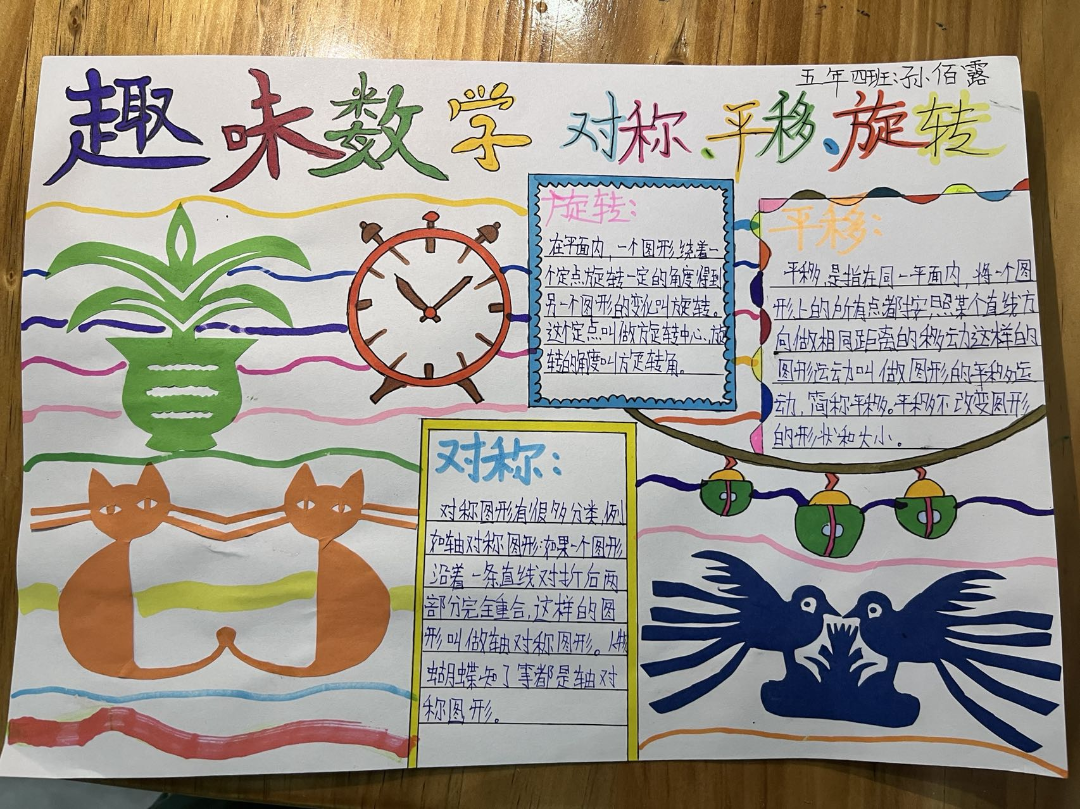 五年四班:孙佰露
趣味数学 对称、平移、旋转
旋转:
在平面内,一个图形绕着一
个定点旋转一定的角度得到
另一个图形的变化叫旋转。
这个定点叫做旋转中心,旋
转的角度叫旋转角。
平移:
平移,是指在同一平面内,将一个图
形上的所有点都按照某个直线方
向做相同距离的移动这样的
图形运动叫做图形的平移运
动,简称平移。平移不改变图形
的形状和大小。
对称:
对称图形有很多分类,例
如轴对称图形:如果一个图形
沿着一条直线对折后两
部分完全重合,这样的图
形叫做轴对称图形。
蝴蝶知了等都是轴对
称图形。